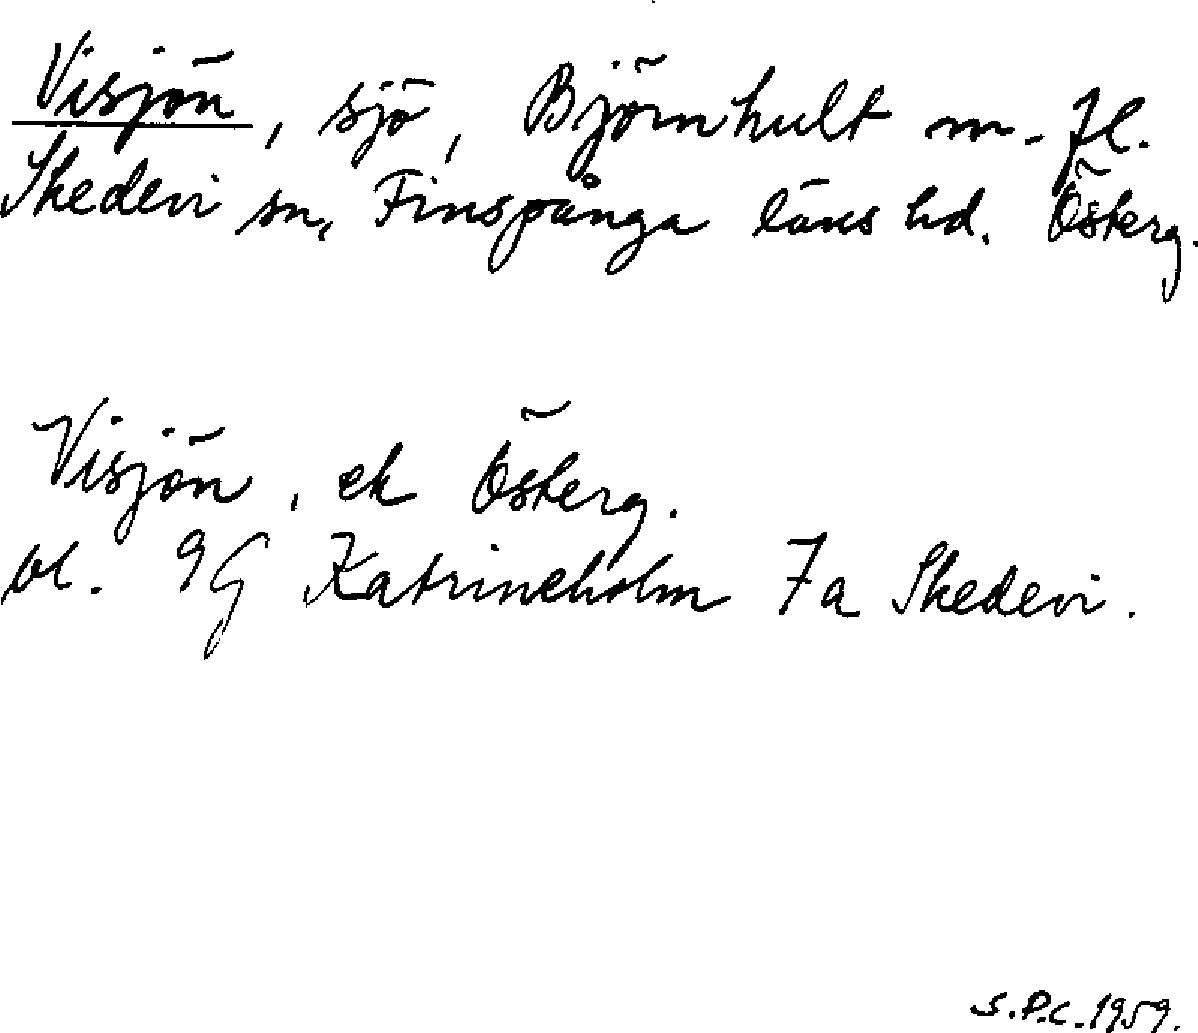 Visjön, sjö, Björnhult m.fl.
Skedevi sn, Finspånga läns hd. Österg.
Visjön, ek Österg.
bl. 9G Katrineholm 7a Skedevi.
S.P.C. 1959.